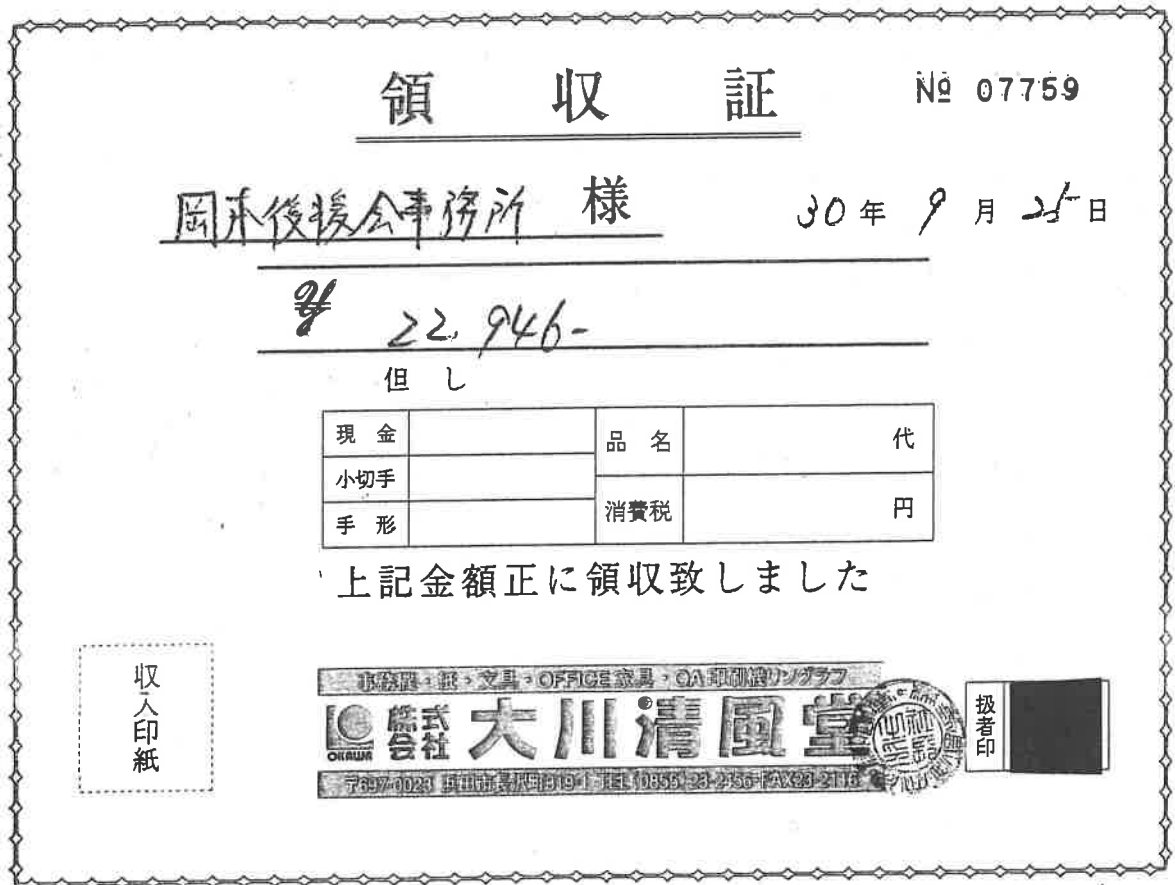 領収証
№ 07759
岡本後援会事務所 様
30年 9月 25日
¥ 22,946-
但し
現金
小切手
手形
品名 代
消費税 円
上記金額正に領収致しました
収入印紙
事務機・紙・文具・OFFICE家具・OA印刷機リソグラフ
OKAWA 株式会社 大川清風堂
〒697-0023 浜田市長沢町319-1 TEL (0855) 23-2456 FAX 23-2116
扱者印